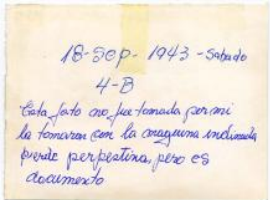 18-Sep- 1943 - Sabado
4-B
Esta foto no fue tomada por mi
la tomaron con la maquina indicada
pierde perpestina, pero es
documento